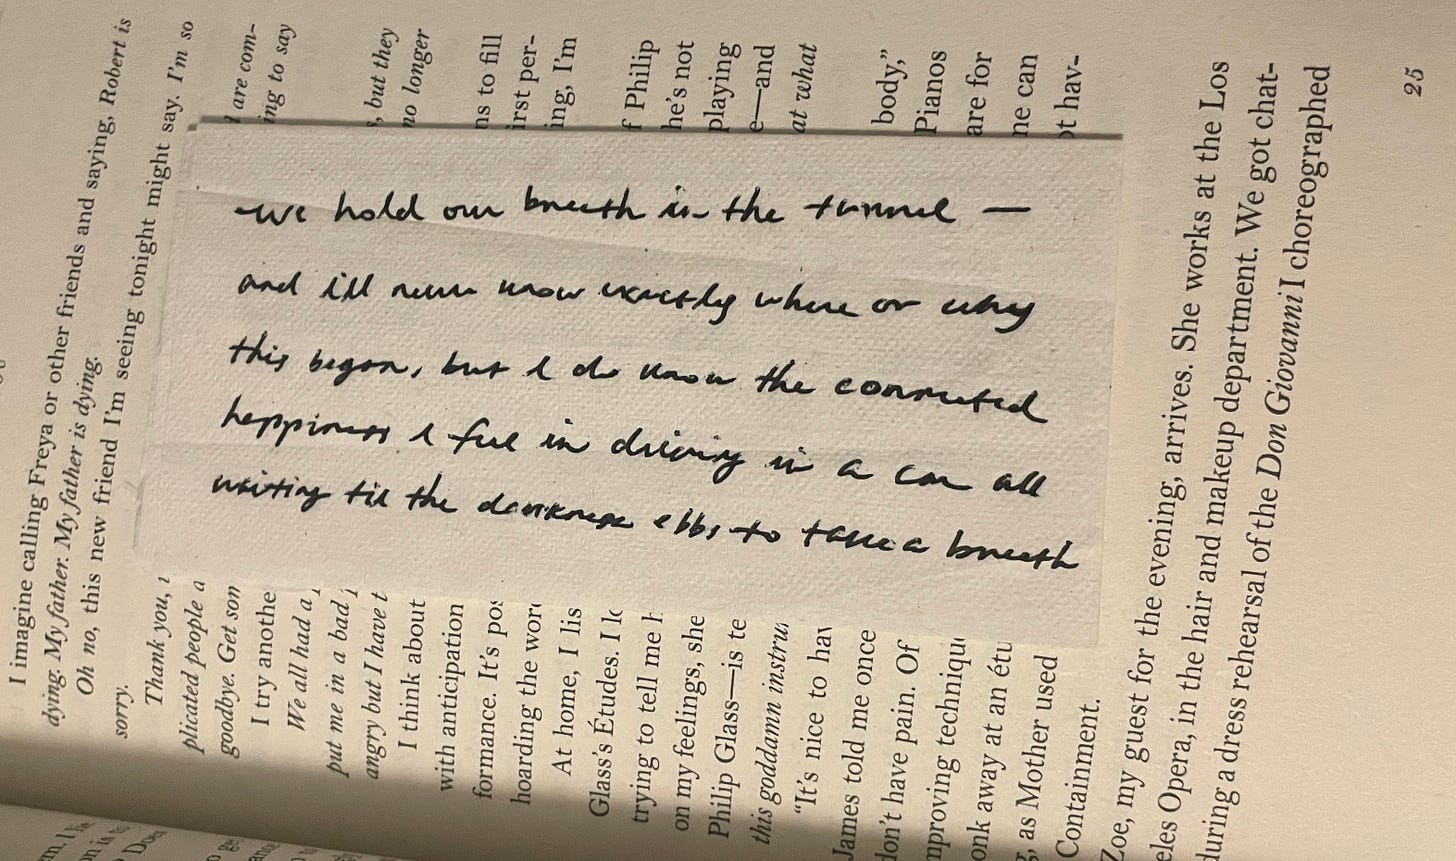 we hold our breath in the tunnel —
and ill never know exactly where or why
this began, but I do know the connected
happiness I feel in driving in a car all
waiting til the darkness ebbs to take a breath
I imagine calling Freya or other friends and saying, Robert is
dying. My father. My father is dying.
Oh no, this new friend I'm seeing tonight might say. I'm so
sorry.
Thank you, are com-
plicated people a ing to say
goodbye. Get son
I try anothe
We all had a , but they
put me in a bad no longer
angry but I have t
I think about ns to fill
with anticipation irst per-
formance. It's pos ing, I'm
hoarding the word
At home, I lis f Philip
Glass's Études. I he's not
trying to tell me playing
on my feelings, she e—and
Philip Glass—is te at what
this goddamn instru
"It's nice to hav body,"
James told me once Pianos
don't have pain. Of are for
mproving techniqu ne can
onk away at an étu ot hav-
, as Mother used
Containment.
Zoe, my guest for the evening, arrives. She works at the Los
eles Opera, in the hair and makeup department. We got chat-
during a dress rehearsal of the Don Giovanni I choreographed
25